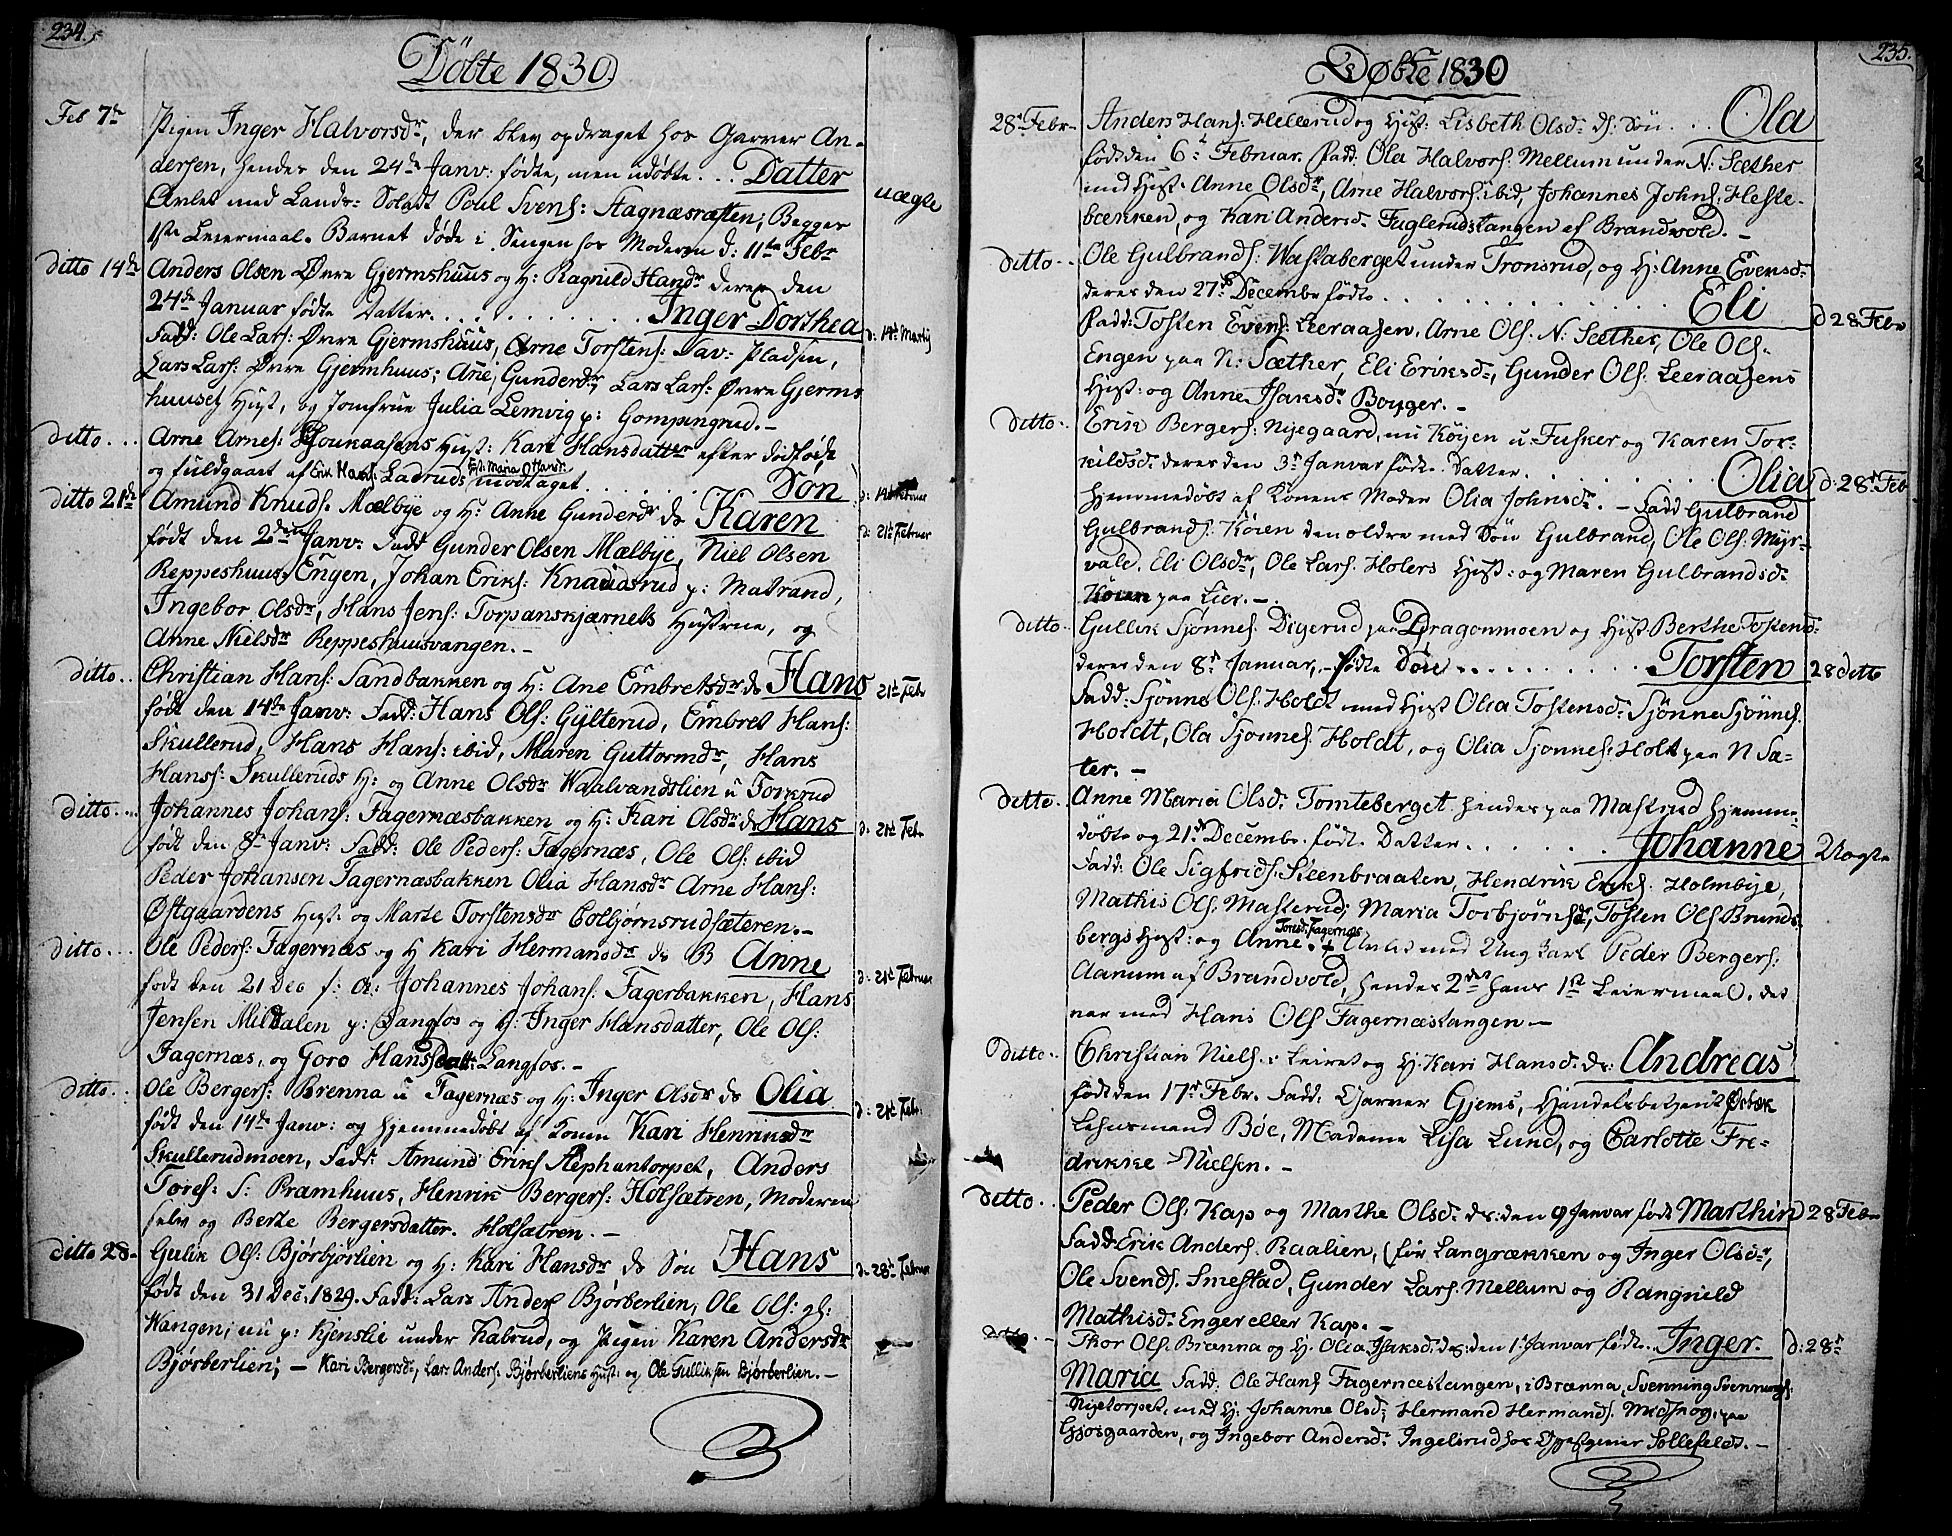 234.
Döbte 1830.
Feb 7de Pigen Inger Halvorsdr, der blev opdraget hos Garver An-
dersen, hendes den 24de Janv: fødte, men udøbte... Datter
Avlet med Lands: Soldt Poul Svens: Aagnæsræften; Begges uægte
1ste Leiermaal. Barnet døde i Sengen hos Moderen d: 11te Febr
ditto 14de Anders Olsen Øvre Gjermshuus og H: Ragnild Hansdr deres den
24de Januar fødte Datter.......... Inger Dorthea
Fadd: Ole Lars: Øvre Gjermshuus, Arne Torstens: Dav: Pladsen, d: 14de Martij
Lars Lars: Øvre Gjermhuus; Ane Gundersdr, Lars Lars: Øvre Gjerms
huuses Hust, og Jomfrue Julia Lemvig p: Gompingrud.-
ditto... Arne Arnes: Houkaasens Hust: Kari Hansdatter efter dødfødt
og fuldgaaet af Erik Hans: Ladruds Hust: Maria O Hansdr modtaget....... Søn d: 14 Februar
ditto 21de Amund Knuds. Mælbye og H: Anne Gundersdr ds Karen d: 21de Februar
født den 2den Janv: Fadd Gunder Olsen Mælbye, Niel Olsen
Reppeshuus-Engen, Johan Eriks: Knadstrud p: Matrand,
Ingebor Olsdr, Hans Jens: Torpanskjærnets Hustrue, og
Anne Nielsdr Reppeshuusvangen.-
ditto.. Christian Hans: Sandbakken og H: Ane Embretsdr ds Hans 21de Febr
født den 14de Janv: Fadd: Hans Ols: Gylterud, Embret Hans:
Skullerud, Hans Hans: ibid, Maren Guttormsdr, Hans
Hanss: Skulleruds H: og Anne Olsdr Waalvandslien u Torkrud
ditto... Johannes Johans: Fagernæsbakken og H: Kari Olsdr ds Hans d: 21de Febr
født den 8de Janv: Fadd: Ole Peders: Fagernæs, Ole Ols: ibid
Peder Johansen Fagernæsbakken Olia Hansdr Arne Hans:
Østgaardens Hust: og Marte Torstensdr Colbjørnsrudsæteren.-
ditto... Ole Peders: Fagernæs og H Kari Hermansdr ds B Anne d: 21de Februar
født den 21 Dec f: A: Johannes Johans: Fagerbakken, Hans
Jensen Mildalen p: Langfos og H: Inger Hansdatter, Ole Ols:
Fagernæs, og Goro Hansdatt: Langfos.-
ditto.. Ole Bergers: Brenna u Fagernæs og H: Inger Olsdr ds Olia d: 21de Febr.
født den 14de Janv: og hjemmedøbt af Konen Kari Henriksdr
Skullerudmoen, Fadd: Amund Eriks Stephantorpet, Anders
Tores: S: Pramhuus, Henrik Bergers: Holsætren, Moderen
selv og Berte Bergersdatter. Holsætren.-
ditto 28- Gulik Ols: Bjørbjørlien og H: Kari Hansdr ds Søn Hans d: 28de Februar
født den 31 Dec: 1829. Fadd: Lars Anders Bjørberlien, Ole Ols: gl:
Wangen, nu p: Kjenslie under Kabrud, og Pigen Karen Andersdr
Bjørberlien; - Kari Bergersdr, Lars Anders: Bjørberliens Hust: og Ole Gulliksen Bjørberlien.-
235.
Døbte 1830
28de Febr. Anders Hans: Hellerud og Hust: Lisbeth Olsdr ds: Søn... Ola
født den 6te Februar. Fadd: Ola Halvors: Mellum under N: Sæther
med Hust: Anne Olsdr, Arne Halvors: ibid, Johannes Johns: Heste-
bækken, og Kari Andersdr Fuglerudstangen af Brandvold.-
ditto.. Ole Gulbrands: Wastaberget under Tronsrud, og H: Anne Evensdr
deres den 27de Decembr fødte............ Eli
Fadd: Tosten Evens: Leeraasen, Arne Ols. N: Sæther, Ole Ols. d 28 Febr
Engen paa N: Sæther, Eli Eriksdr, Gunder Ols: Leeraasens
Hust: og Anne Isaksdr Bonger.-
ditto.. Erik Bergers: Nyegaard, nu Køijen u: Fusker og Karen Tor-
kildsdr deres den 3de Januar fødte Datter............ Olia d: 28de Feb
hjemmedøbt af Konens Moder Olia Johnsdr.- Fadd Gulbrand
Gulbrands: Køien den ældre med Søn Gulbrand, Ole Ols: Myr-
vold. Eli Olsdr, Ole Lars: Holers Hust: og Maren Gulbrandsdr
Køien paa Lier.-
ditto.. Gullik Sjønnes: Digerud paa Dragonmoen og Hust Berthe Tostensdr
deres den 8de Januar,- fødte Søn......... Torsten 28 ditto
Fadd: Sjønne Ols: Holdt med Hust Olia Tostensdr Sjønne Sjønnes
Holdt, Ola Sjønnes: Holdt, og Olia Sjonnes: Holt paa N Sæ-
ter.-
ditto.. Anne Maria Olsdr Tomteberget hendes paa Mastrud hjemme-
døbte og 21de Decembr. fødte Datter....... Johanne Uægte
Fadd: Ole Sigfrids: Steenbraaten, Hendrik Eriks: Holmbye,
Mathis Ols: Masterud; Maria Torbjørnsdr, Tosten Ols Brunds-
bergs Hust: og Anne Toresdr Fagernæs. Avlet med Ung Karl Peder Bergers:
Aanum af Brandvold, hendes 2det hans 1ste Leiermaal. det
var med Hans Ols Fagernæstangen-
ditto.. Christian Niels.: Leiret og H: Kari Hansdr ds: Andreas
født den 17de Febr. Fadd. Garver Gjems, Handelsbetjent Ørbæk
Lehnsmand Bøe, Madame Lisa Lund, og Carlotte Fre-
drikke Nielsen.-
ditto.. Peder Ols: Kap og Marthe Olsdr ds: den 9 Januar født Marthin d 28 Febr
Fadd: Erik Anders. Raalien, (før Langrækken og Inger Olsdr,
Ole Svends. Smestad, Gunder Lars: Mellum og Rangnild
Mathisdr Enger eller Kap.-
ditto.- Thor Ols. Brænna og H. Olia Isaksdr ds: den 1 Januar født. Inger. d: 28de
Maria Fadd. Ole Hans Fagernæstangen, i Brænna, Svenning Svennungs:
Nyetorpet, med H. Johanne Olsdr; Hermand Hermands. Midskog, paa
Gjøsgaarden, og Ingebor Andersdr Ingelsrud hos Opsegneer Sollefeldt.-